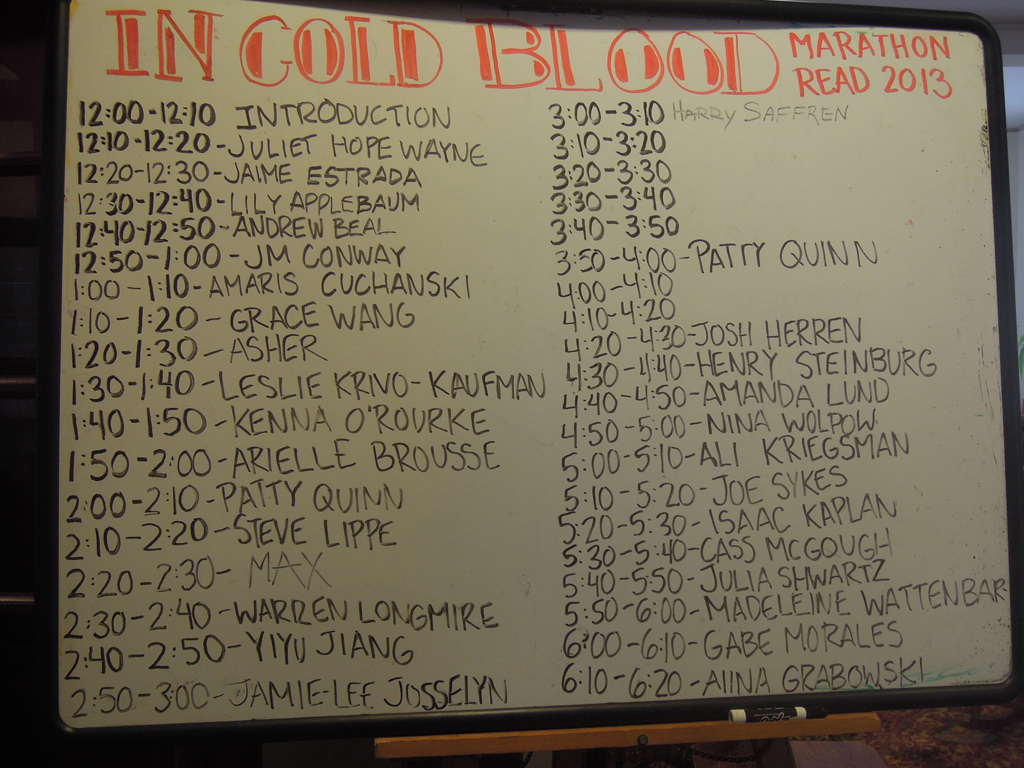 IN COLD BLOOD MARATHON READ 2013
12:00-12:10 INTRODUCTION
12:10-12:20-JULIET HOPE WAYNE
12:20-12:30-JAIME ESTRADA
12:30-12:40-LILY APPLEBAUM
12:40-12:50-ANDREW BEAL
12:50-1:00-JM CONWAY
1:00-1:10-AMARIS CUCHANSKI
1:10-1:20-GRACE WANG
1:20-1:30-ASHER
1:30-1:40-LESLIE KRIVO-KAUFMAN
1:40-1:50-KENNA O'ROURKE
1:50-2:00-ARIELLE BROUSSE
2:00-2:10-PATTY QUINN
2:10-2:20-STEVE LIPPE
2:20-2:30-MAX
2:30-2:40-WARREN LONGMIRE
2:40-2:50-YIYU JIANG
2:50-3:00-JAMIE-LEE JOSSELYN
3:00-3:10 HARRY SAFFREN
3:10-3:20
3:20-3:30
3:30-3:40
3:40-3:50
3:50-4:00-PATTY QUINN
4:00-4:10
4:10-4:20
4:20-4:30-JOSH HERREN
4:30-4:40-HENRY STEINBURG
4:40-4:50-AMANDA LUND
4:50-5:00-NINA WOLPOW
5:00-5:10-ALI KRIEGSMAN
5:10-5:20-JOE SYKES
5:20-5:30-ISAAC KAPLAN
5:30-5:40-CASS MCGOUGH
5:40-5:50-JULIA SHWARTZ
5:50-6:00-MADELEINE WATTENBAR
6:00-6:10-GABE MORALES
6:10-6:20-AIINA GRABOWSKI